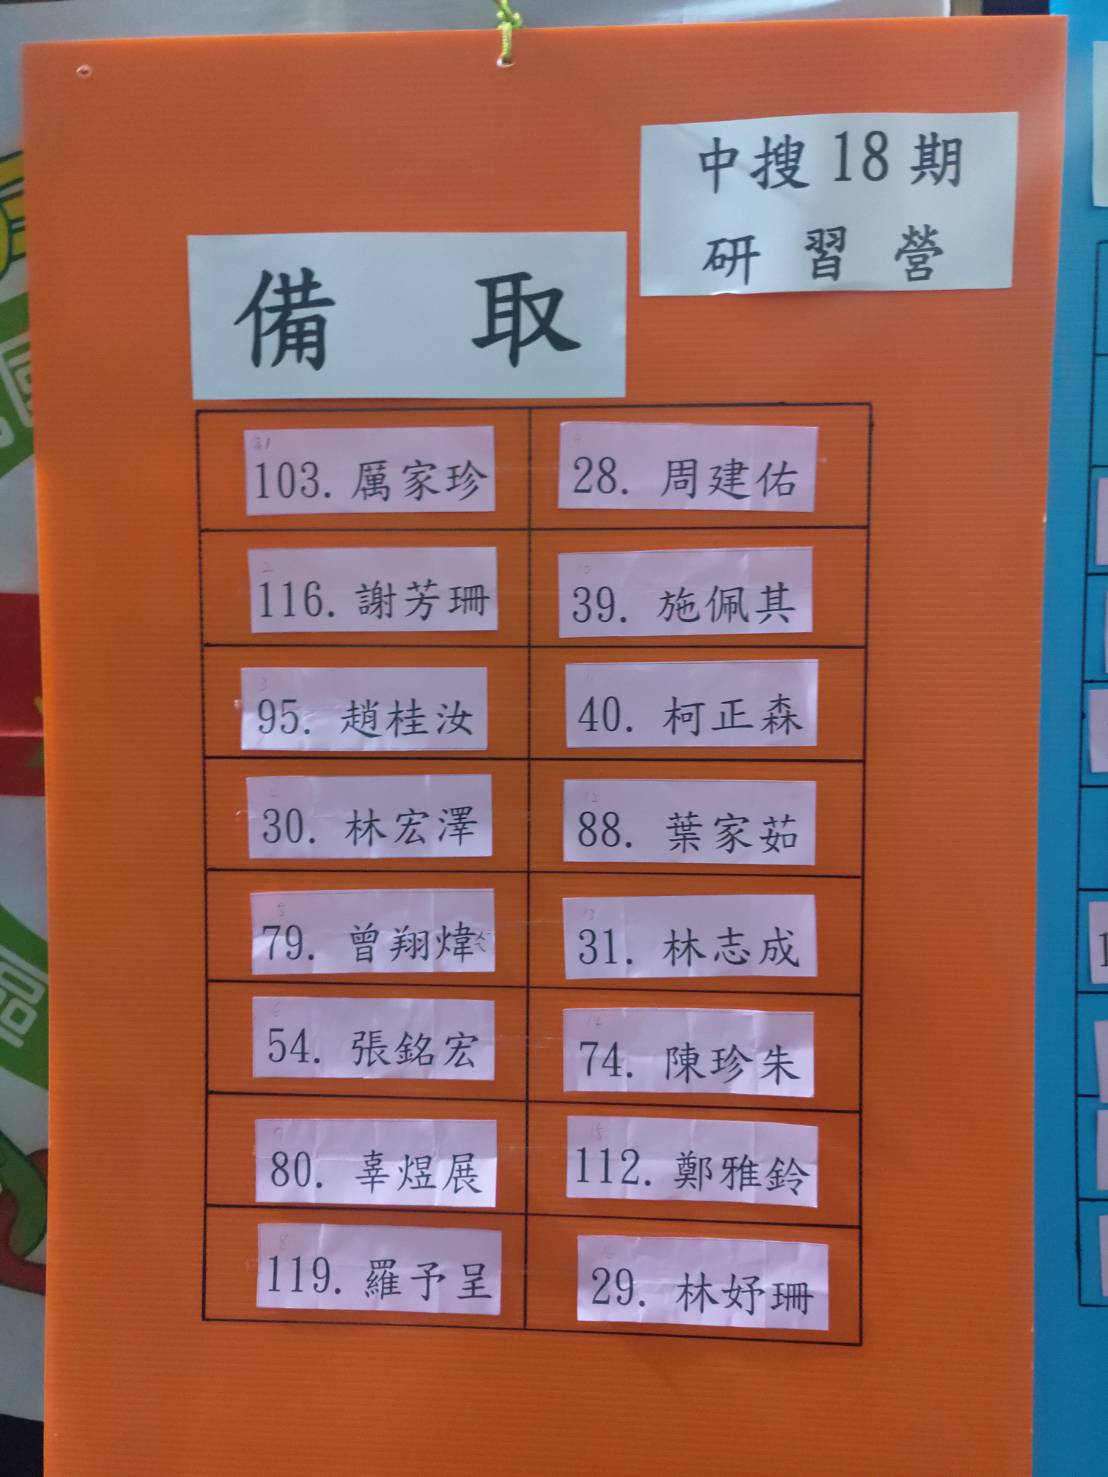 中搜18期
研習營
備取
103. 厲家珍
28. 周建佑
116. 謝芳珊
39. 施佩其
95. 趙桂汝
40. 柯正森
30. 林宏澤
88. 葉家茹
79. 曾翔煒
31. 林志成
54. 張銘宏
74. 陳珍朱
80. 辜煜展
112. 鄭雅鈴
119. 羅予呈
29. 林妤珊